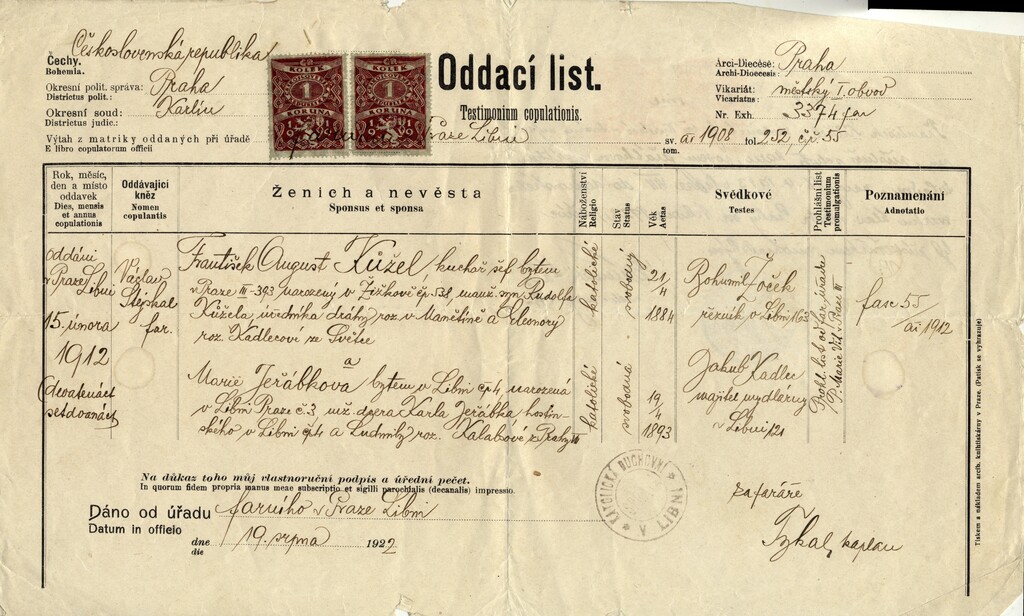 Československá republika
Čechy.
Bohemia.
Okresní polit. správa: Praha
Districtus polit.:
Okresní soud: Karlín
Districtus judic.:
Výtah z matriky oddaných při úřadě Praze Libni sv. ai 1908 fol. 252, čp. 55
E libro copulatorum officii tom.
ČR
KOLEK
1
KORUNA
ČR
KOLEK
1
KORUNA
Oddací list.
Testimonium copulationis.
Arci-Diecése: Praha
Archi-Dioecesis:
Vikariát: městský I. obvod
Vicariatus:
Nr. Exh. 3374 far
Rok, měsíc, den a místo oddavek
Dies, mensis et annus copulationis
Oddávající kněz
Nomen copulantis
Ženich a nevěsta
Sponsus et sponsa
Náboženství
Religio
Stav
Status
Věk
Aetas
Svědkové
Testes
Prohlášní list
Testimonium promulgationis
Poznamenání
Adnotatio
oddáni
v Praze Libni
15. února
1912
(devatenáct
set dvanáct
Václav
Stejskal
far.
František August Kůžel, kuchař šéf bytem
v Praze III-393 narozený v Žižkově čp. 538, manž. syn Rudolfa
Kůžela úředníka dráhy roz. v Manětíně a Eleonory
roz. Kadlecové ze Světce
a
Marie Jeřábková bytem v Libni čp 4, narozená
v Libni Praze č. 3 manž. dcera Karla Jeřábka hostin-
ského v Libni čp 4 a Ludmily roz. Kalabsové z Prahy
katolické
svobodný
21/4
1884
katolické
svobodná
19/4
1893
Bohumil Zoček
řezník v Libni 163
Jakub Kadlec
majitel mydlárny
v Libni 121
Prohl. list od far. úřadu
P. Marie Vít. v Praze III
far 55
ai 1912
Na důkaz toho můj vlastnoruční podpis a úřední pečet.
In quorum fidem propria manus meae subscriptio et sigilli parochialis (decanalis) impressio.
Dáno od úřadu farního v Praze Libni
Datum in officio
dne 19. srpna 1922
die
KATOLICKÝ DUCHOVNÍ
V LIBNI
za faráře
kaplan
Tiskem a nákladem arcib. knihtiskárny v Praze. (Patisk se vyhrazuje)